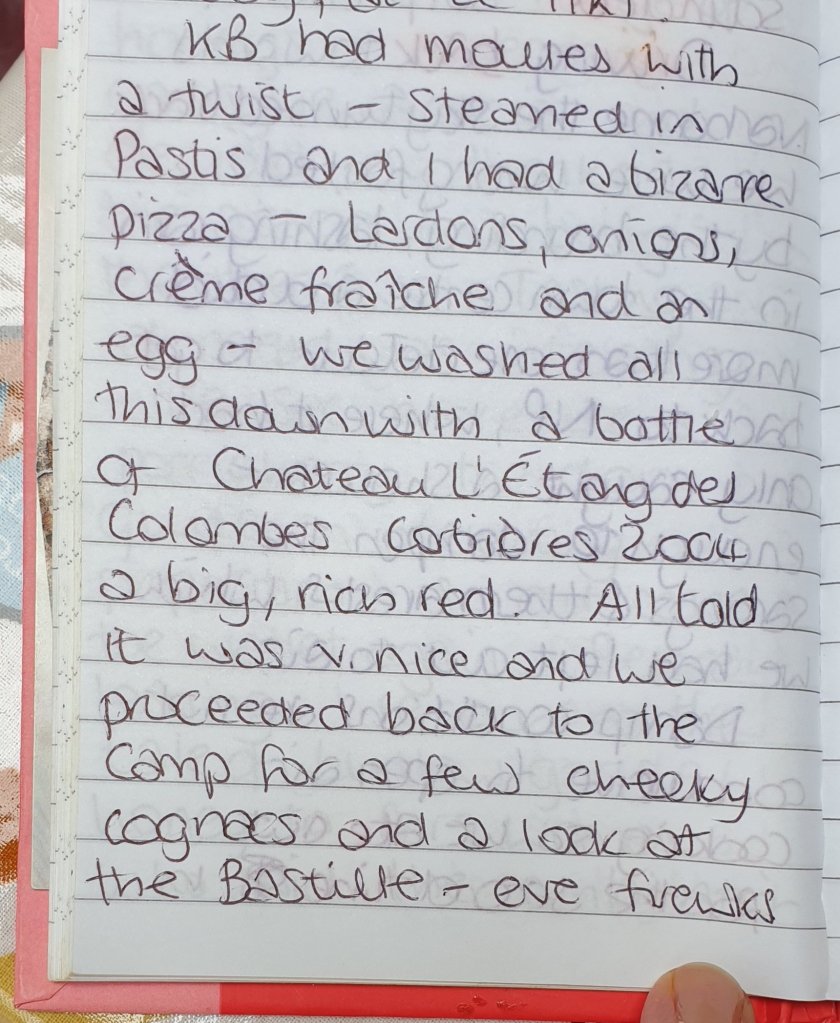 KB had moules with
a twist - steamed in
Pastis and I had a bizarre
pizza - Lardons, onions,
crème fraîche and an
egg - we washed all
this down with a bottle
of Chateau L'Étang des
Colombes Corbières 2004
a big, rich red. All told
it was v. nice and we
proceeded back to the
camp for a few cheeky
cognacs and a look at
the Bastille - eve firewks